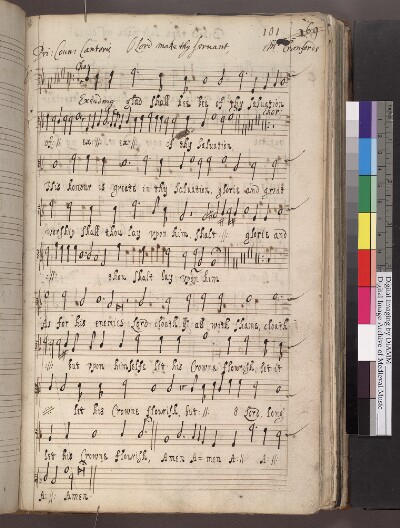 101 169
Pri: Coun: Cantoris O Lord make thy servant Mr Cranford
Exceeding glad shall hee bee of thy Salvation
of :||: ex=||: ex=||: of thy Salvation
His honour is greate in thy Salvation, glorie and great
worship shalt thou lay upon him shalt :||: glorie and
:||: thou shalt lay upon him
As for his enemies Lord cloath ym all with shame, cloath
:||: but upon himselfe let his Crowne flourish, let it
let his Crowne flourish, but :||: O Lord. long
let his Crowne flourish, Amen A=men A:||: A:||:
A:||: Amen
Digital Imaging by DIAMM
Digital Image Archive of Medieval Music